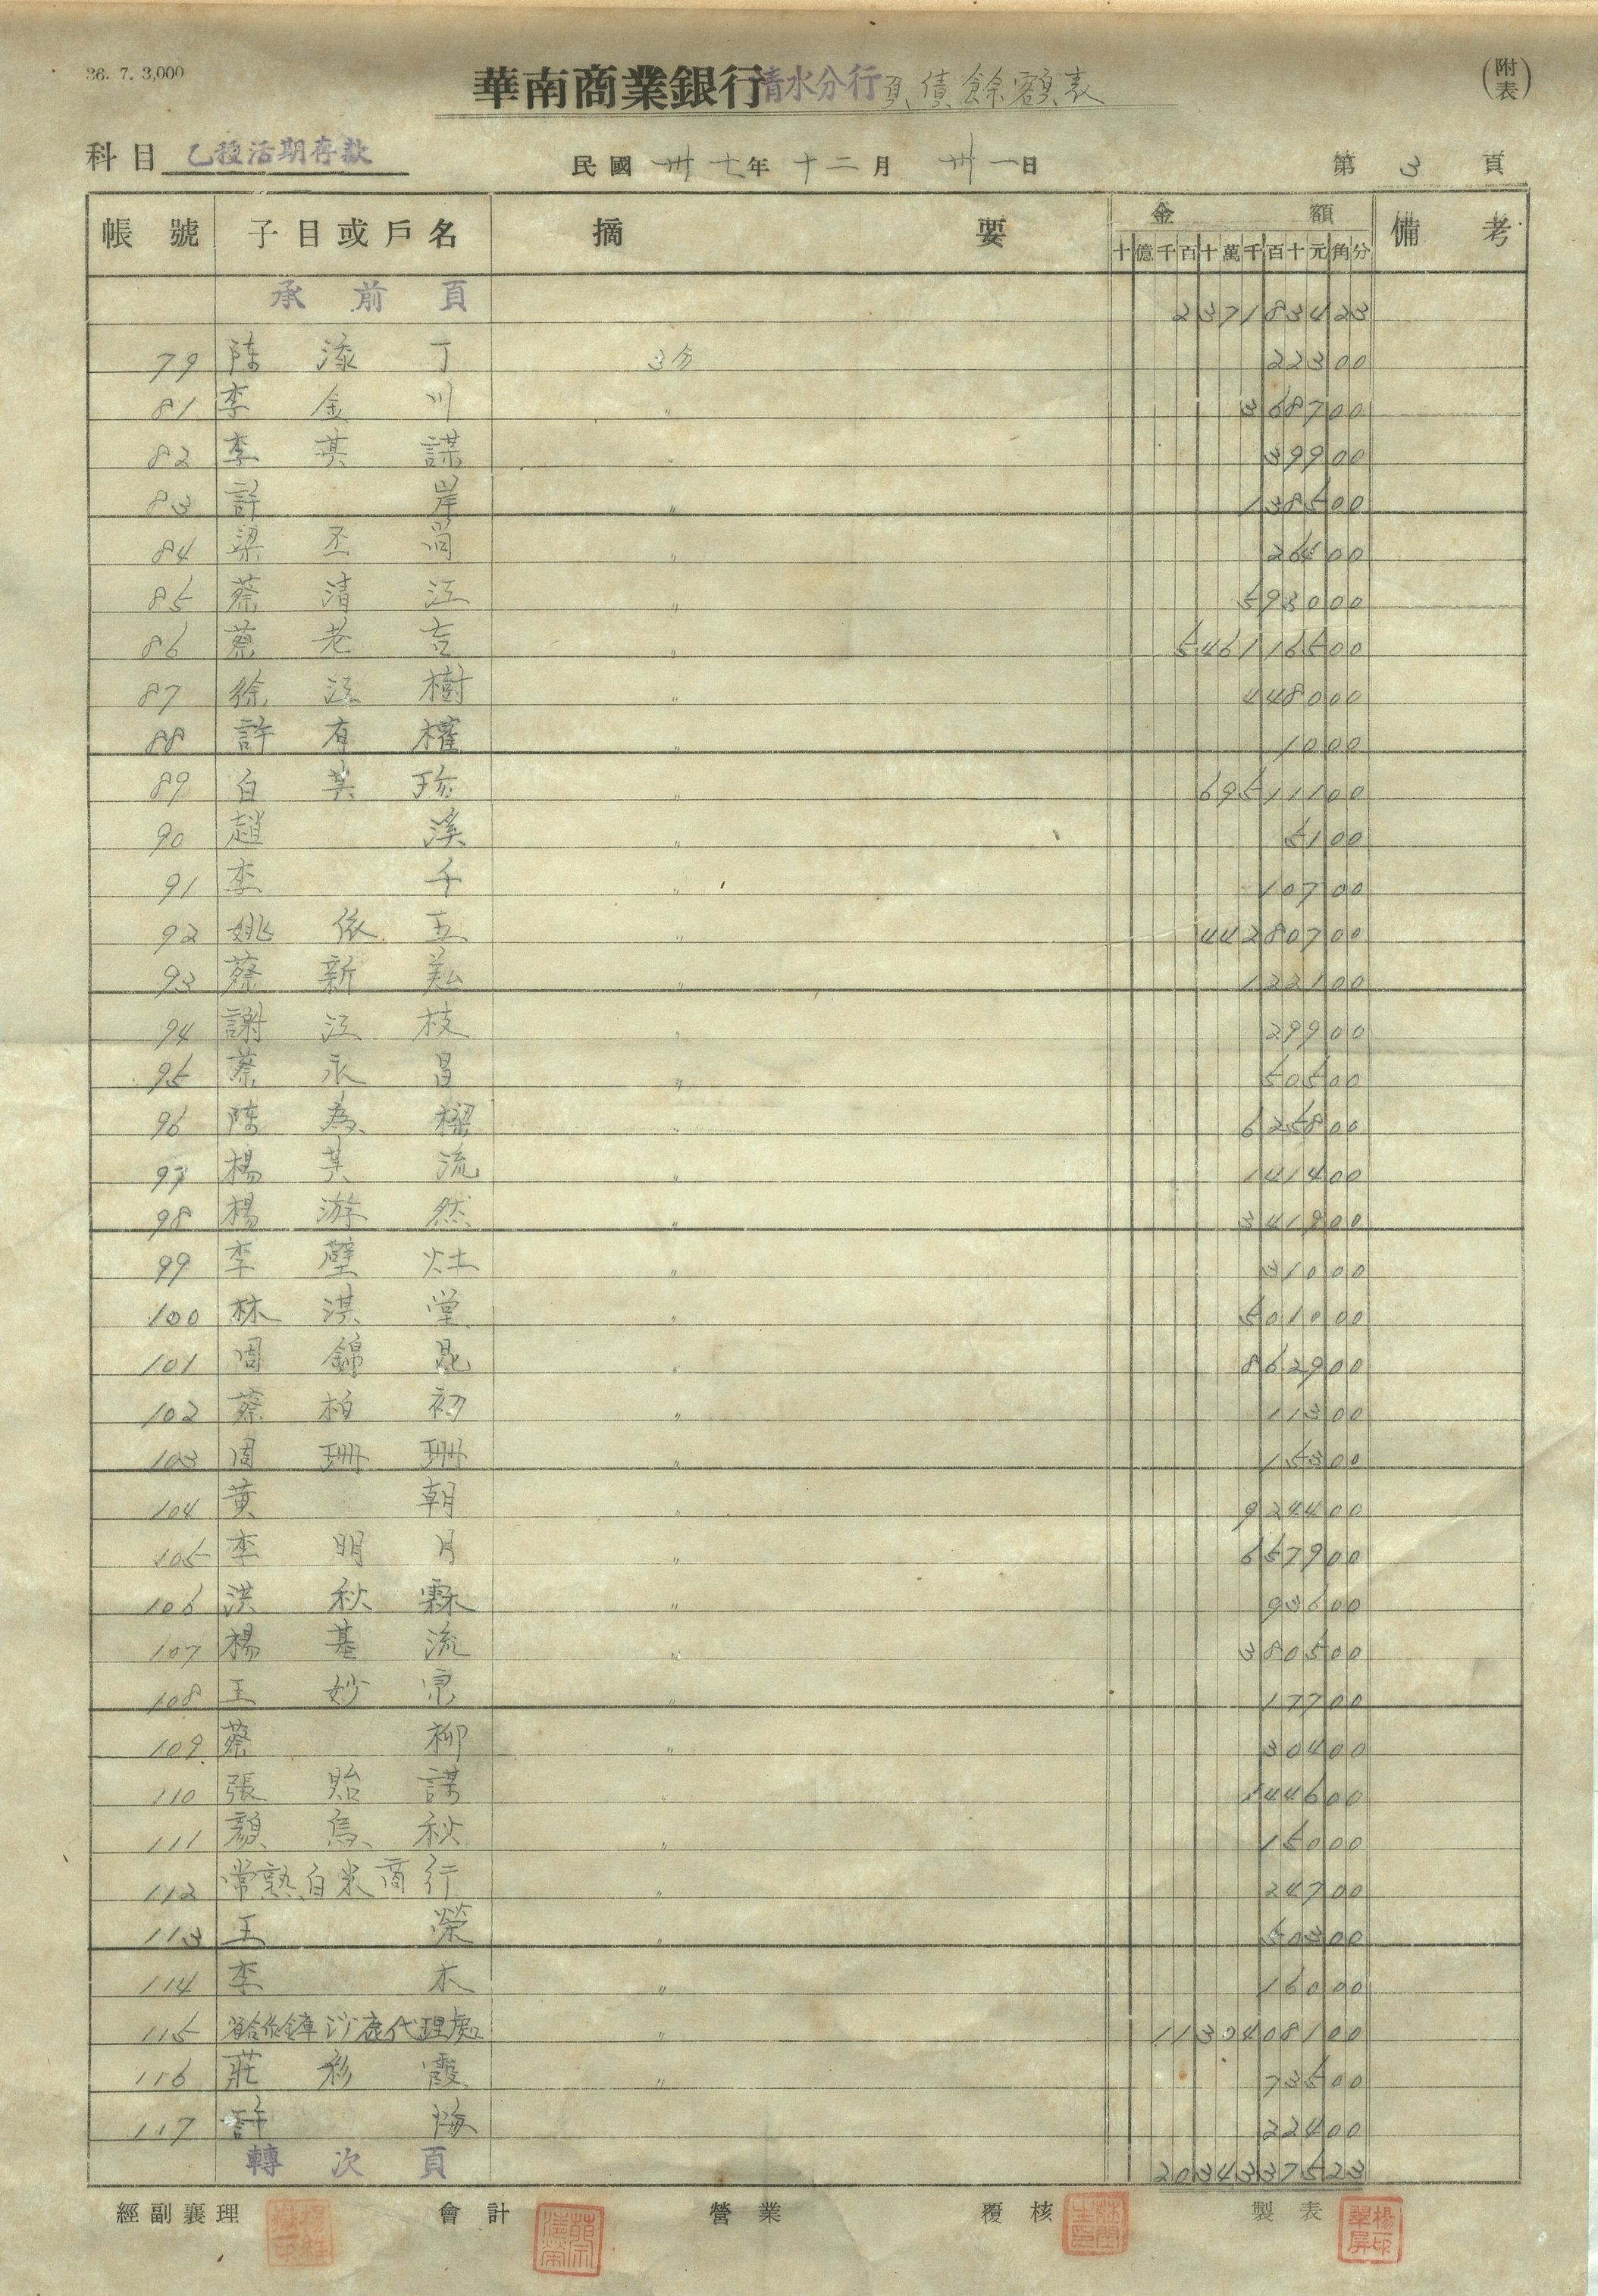 36. 7. 3,000
華南商業銀行清水分行負債餘額表
(附表)
科目 乙種活期存款
民國 卅七年 十二月 卅一日
第 3 頁
帳號 子目或戶名 摘要 金額 備考
十億千百十萬千百十元角分
承前頁 2371834 23
79 陳添丁 3分 223 00
81 李金川 〃 3687 00
82 李其謀 〃 399 00
83 許岸 〃 1385 00
84 梁丕尚 〃 264 00
85 蔡清江 〃 5930 00
86 蔡老吉 〃 5461165 00
87 徐江樹 〃 4480 00
88 許有權 〃 10 00
89 白英珍 〃 695111 00
90 趙溪 〃 51 00
91 李千 〃 107 00
92 姚依五 〃 442807 00
93 蔡新 〃 1221 00
94 謝江枝 〃 299 00
95 蔡永昌 〃 505 00
96 陳為樑 〃 6258 00
97 楊其流 〃 1414 00
98 楊游然 〃 3419 00
99 李壁灶 〃 310 00
100 林淇堂 〃 5010 00
101 周錦昆 〃 8629 00
102 蔡柏初 〃 113 00
103 周珊珊 〃 153 00
104 黃朝 〃 9244 00
105 李明月 〃 6579 00
106 洪秋霖 〃 936 00
107 楊基流 〃 3805 00
108 王妙 〃 177 00
109 蔡柳 〃 304 00
110 張貽謀 〃 1446 00
111 顏為秋 〃 150 00
112 常熟白米商行 〃 247 00
113 王榮 〃 503 00
114 李木 〃 160 00
115 省合作金庫沙鹿代理處 〃 11304081 00
116 莊彩霞 〃 735 00
117 許海 224 00
轉次頁 20343375 23
經副襄理 會計 營業 覆核 製表